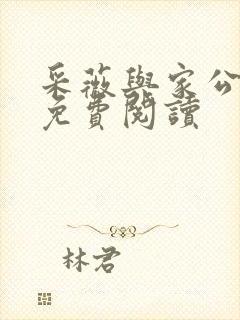 采薇與家公
免費閱讀
林君